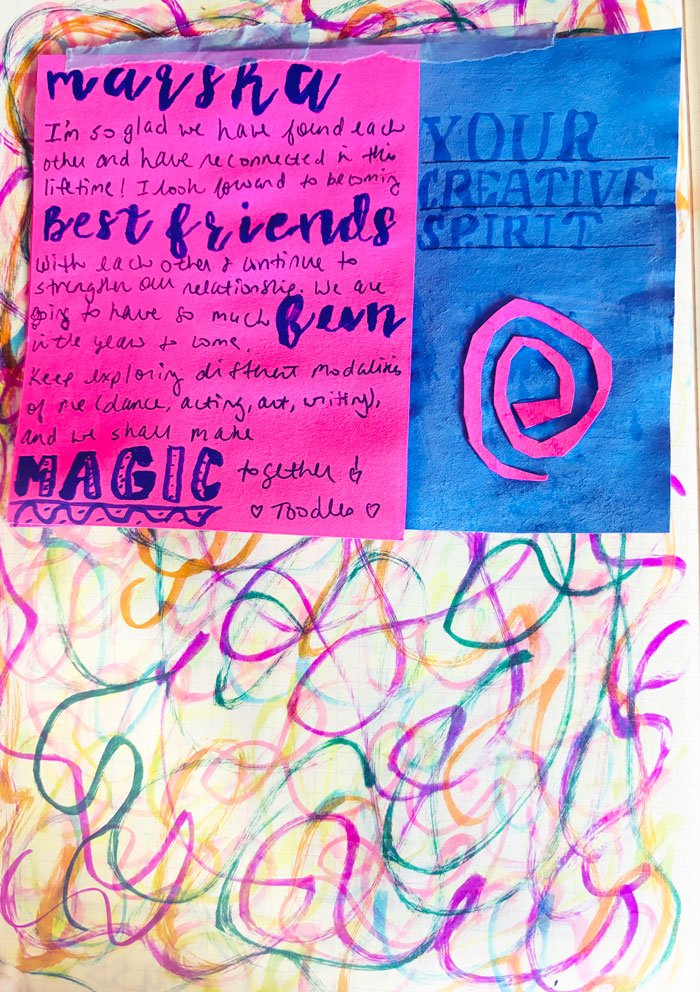 marsha
I'm so glad we have found each
other and have reconnected in this
lifetime! I look forward to becoming
Best friends
with each other & continue to
strengthen our relationship. We are
going to have so much fun
in the years to come.
Keep exploring different modalities
of me (dance, acting, art, writing),
and we shall make
MAGIC together
♡ Toodles ♡
YOUR
CREATIVE
SPIRIT